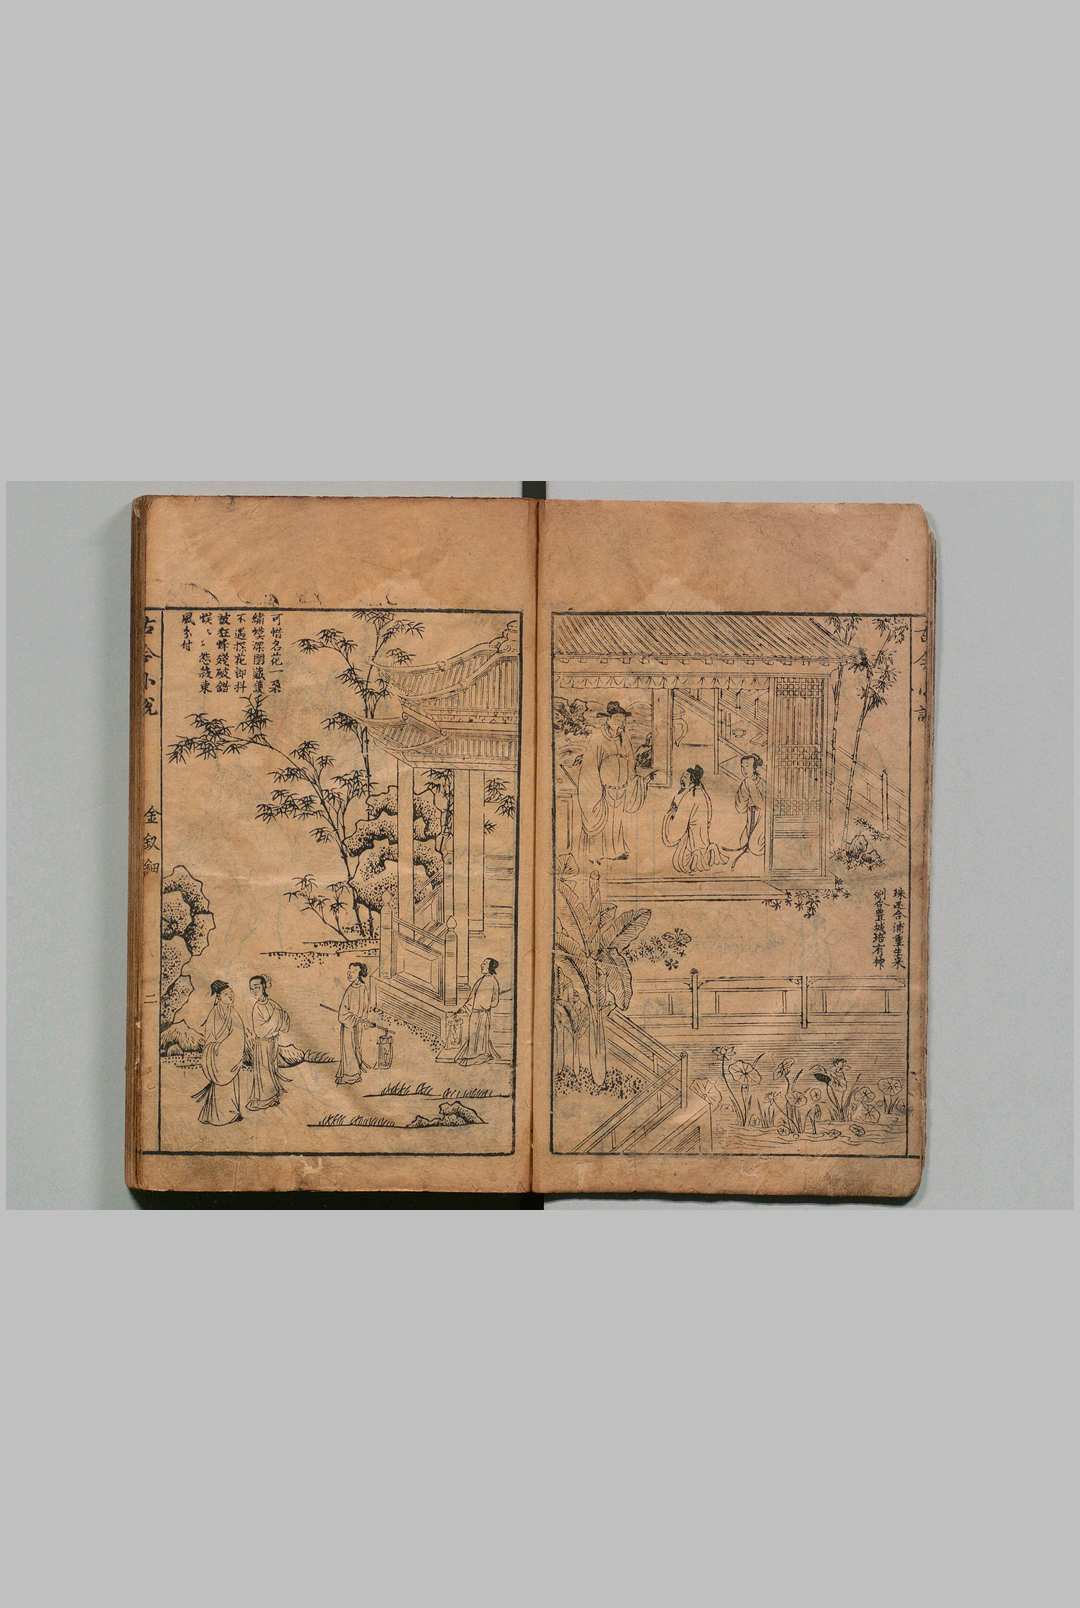 古今小說
珠還合浦重生采
劍合豐城倍有神
可惜名花一朵
繡幙深閨藏護
不遇探花郎抖
被狂蜂殘破錯
悞〻怨殺東
風分付
古今小說
金釵鈿
二